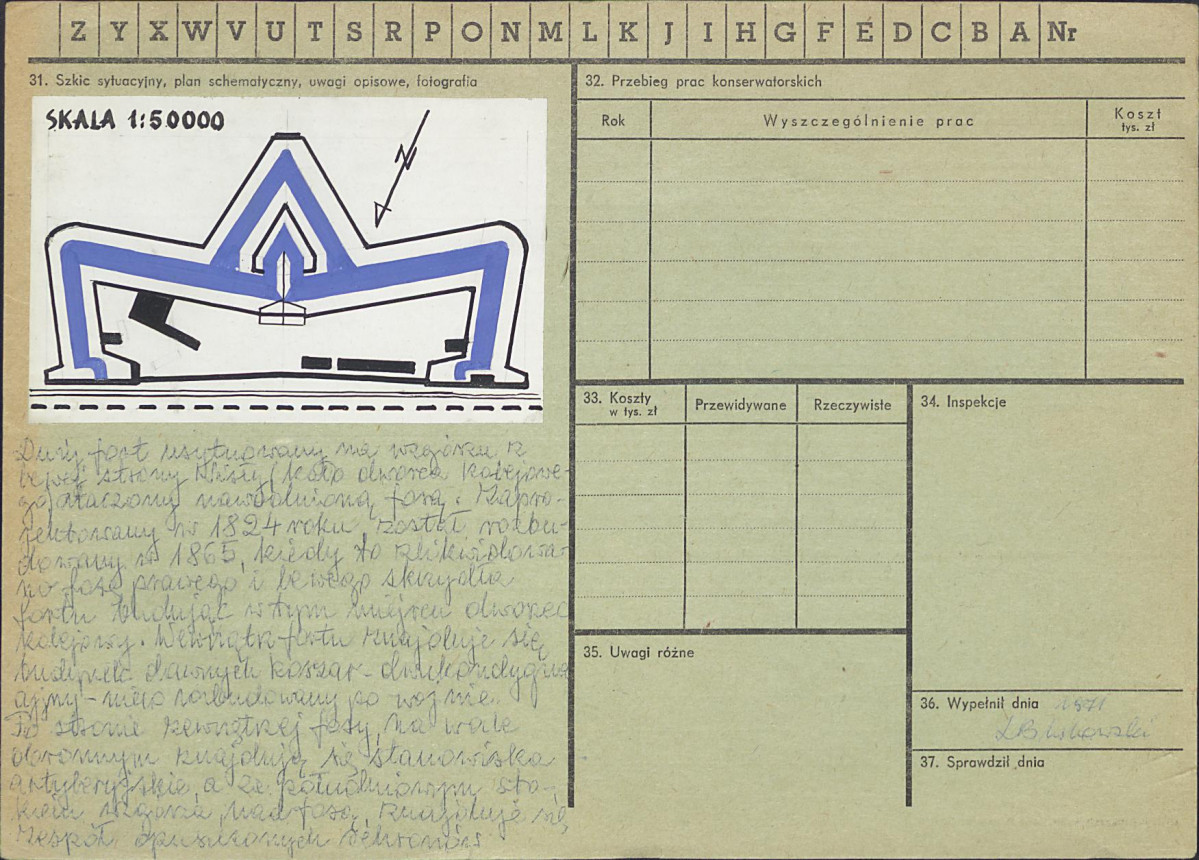 Z Y X W V U T S R P O N M L K J I H G F E D C B A Nr
31. Szkic sytuacyjny, plan schematyczny, uwagi opisowe, fotografia
SKALA 1:50000
N
Duży fort usytuowany na wzgórzu z
lewej strony Wisły (koło dworca kolejowe-
go) otaczony nawodnioną fosą. Zapro-
jektowany w 1824 roku, został rozbu-
dowany w 1865, kiedy to zlikwidowa-
no fosę prawego i lewego skrzydła
fortu budując w tym miejscu dworzec
kolejowy. Wewnątrz fortu znajduje się
budynek dawnych koszar - dwukondygna-
cyjny - nieco rozbudowany po wojnie.
Po stronie zewnętrznej fosy, na wale
obronnym znajdują się stanowiska
artyleryjskie, a ze południowym sto-
kiem wzgórza, nad fosą, znajduje się
zespół opuszczonych schronów.
32. Przebieg prac konserwatorskich
Rok
Wyszczególnienie prac
Koszt
tys. zł
33. Koszty
w tys. zł
Przewidywane
Rzeczywiste
34. Inspekcje
35. Uwagi różne
36. Wypełnił dnia 1971
37. Sprawdził dnia